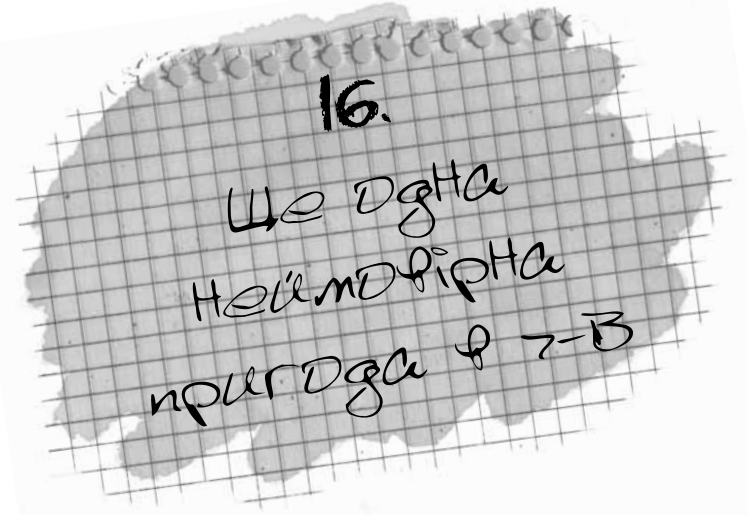 16.
Ще одна
неймовірна
пригода в 7-В